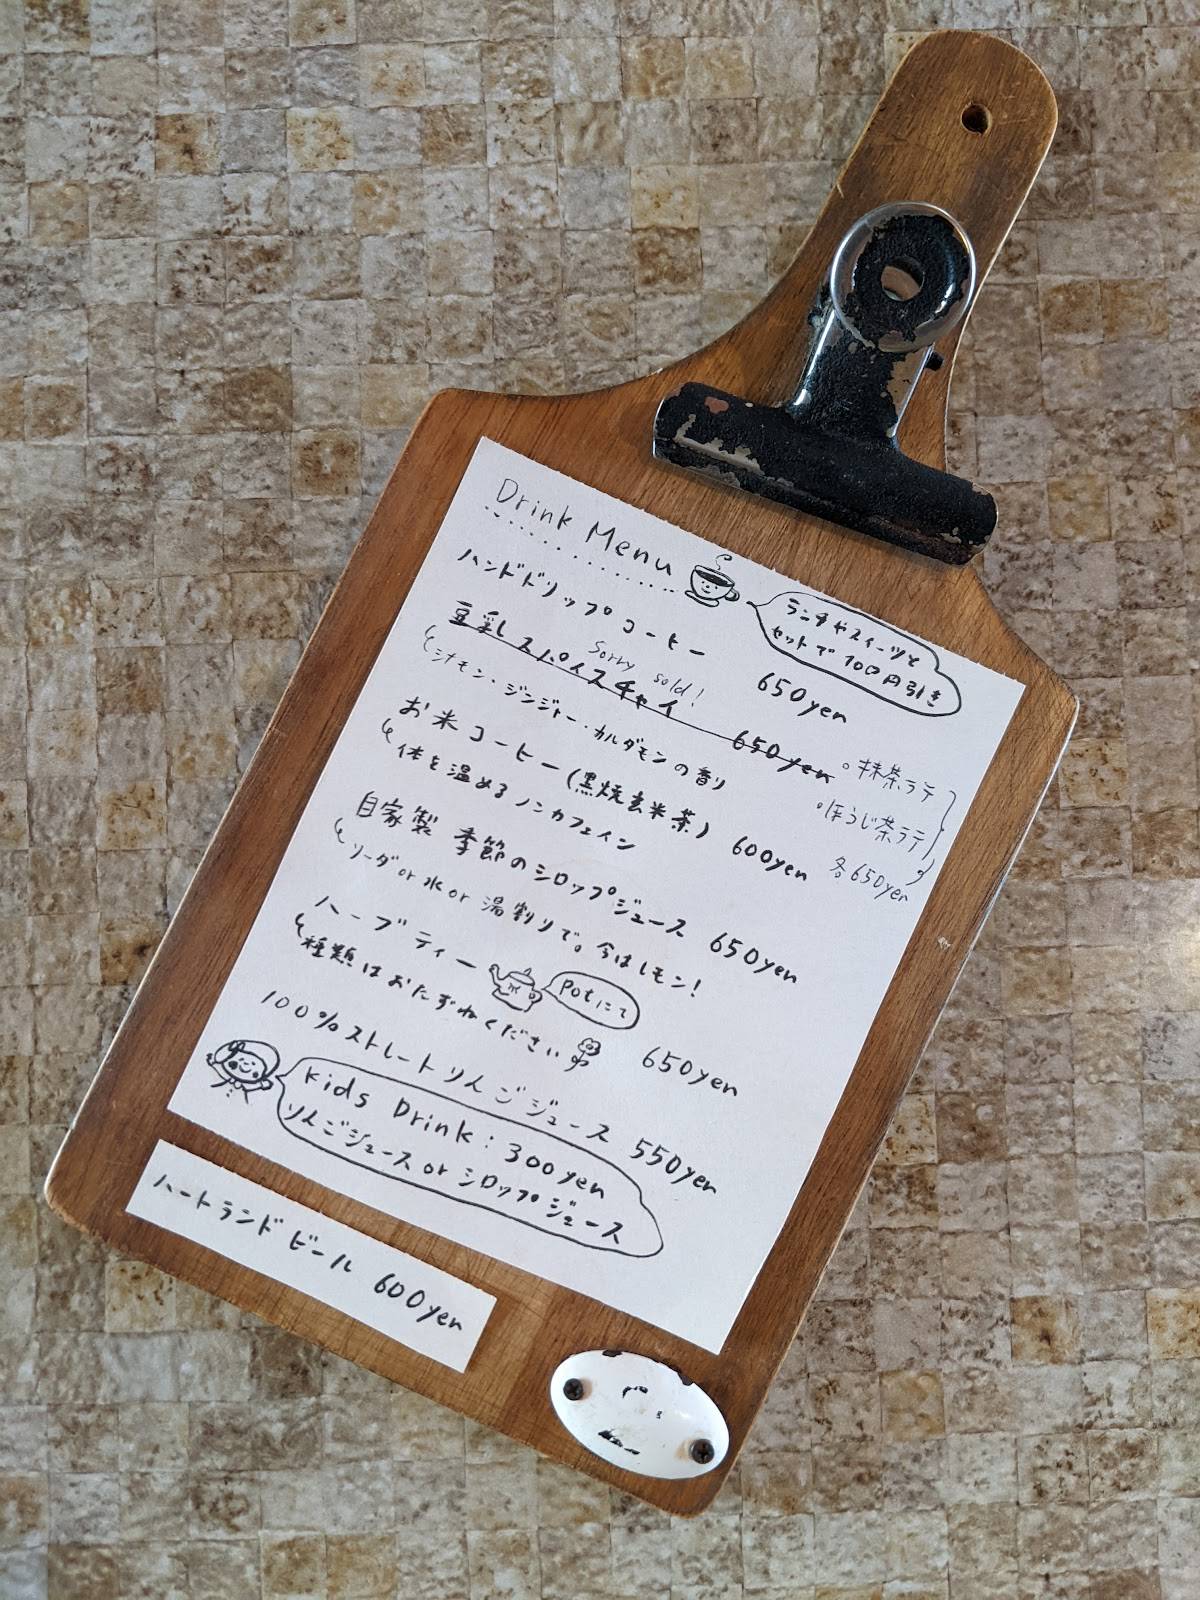 Drink Menu
ランチやスイーツと
セットで100円引き
ハンドドリップコーヒー 650yen
Sorry sold!
豆乳スパイスチャイ 650yen
シナモン・ジンジャー・カルダモンの香り
。抹茶ラテ
。ほうじ茶ラテ
各650yen
お米コーヒー(黒焼玄米茶) 600yen
体を温めるノンカフェイン
自家製 季節のシロップジュース 650yen
ソーダor水or湯割りで。今はレモン!
ハーブティー 650yen
potにて
種類はおたずねください
100%ストレートりんごジュース 550yen
kids Drink:300yen
りんごジュースorシロップジュース
ハートランドビール 600yen